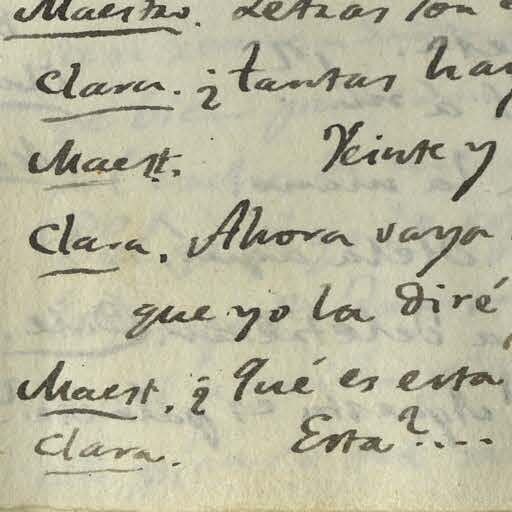 Maestro. Letras son
Clara. ¿tantas hay
Maest. Veinte y
Clara. Ahora vaya
que yo la diré
Maest. ¿Qué es esta
Clara. Esta?....